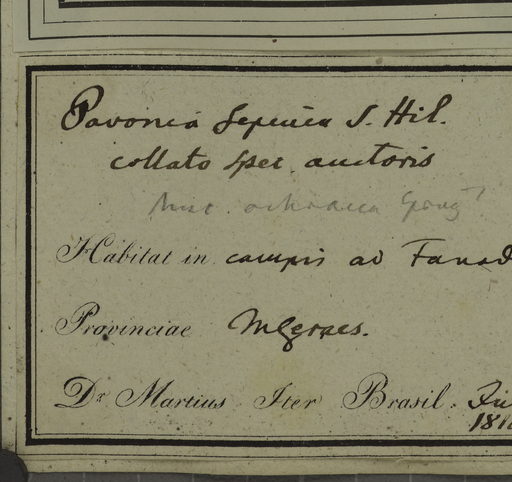 Pavonia sepium S. Hil.
collato spec. auctoris
Habitat in campis ad Tanad
Provinciae MGeraes.
Dr Martius Iter Brasil.
181